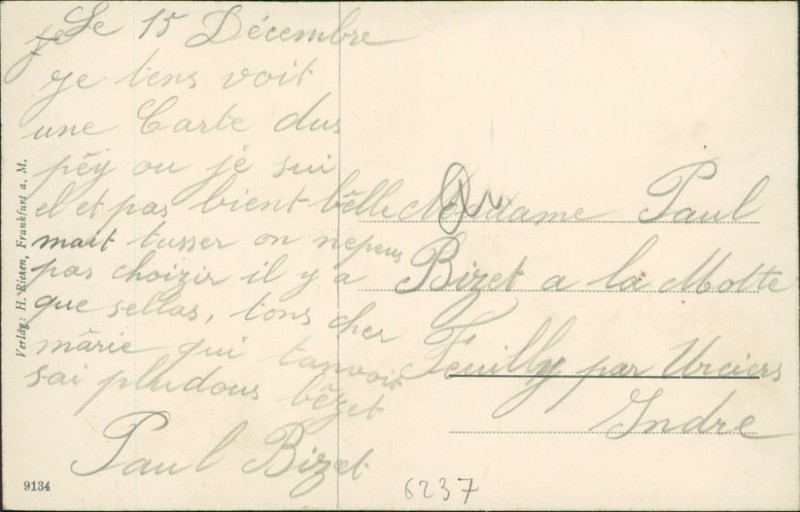 Le 15 Décembre
je tens voit
une Carte dus
péy ou je sui
el et pas bient bêlle
mait tusser on nepeus
pas choizir il y a
que sellas, tons cher
mârie qui tanvoit
sai pludous bêzet
Paul Bizet
Madame Paul
Bizet a la Motte
Feuilly par Urciers
Indre
Verlag: H. Ricken, Frankfurt a. M.
9134
6237